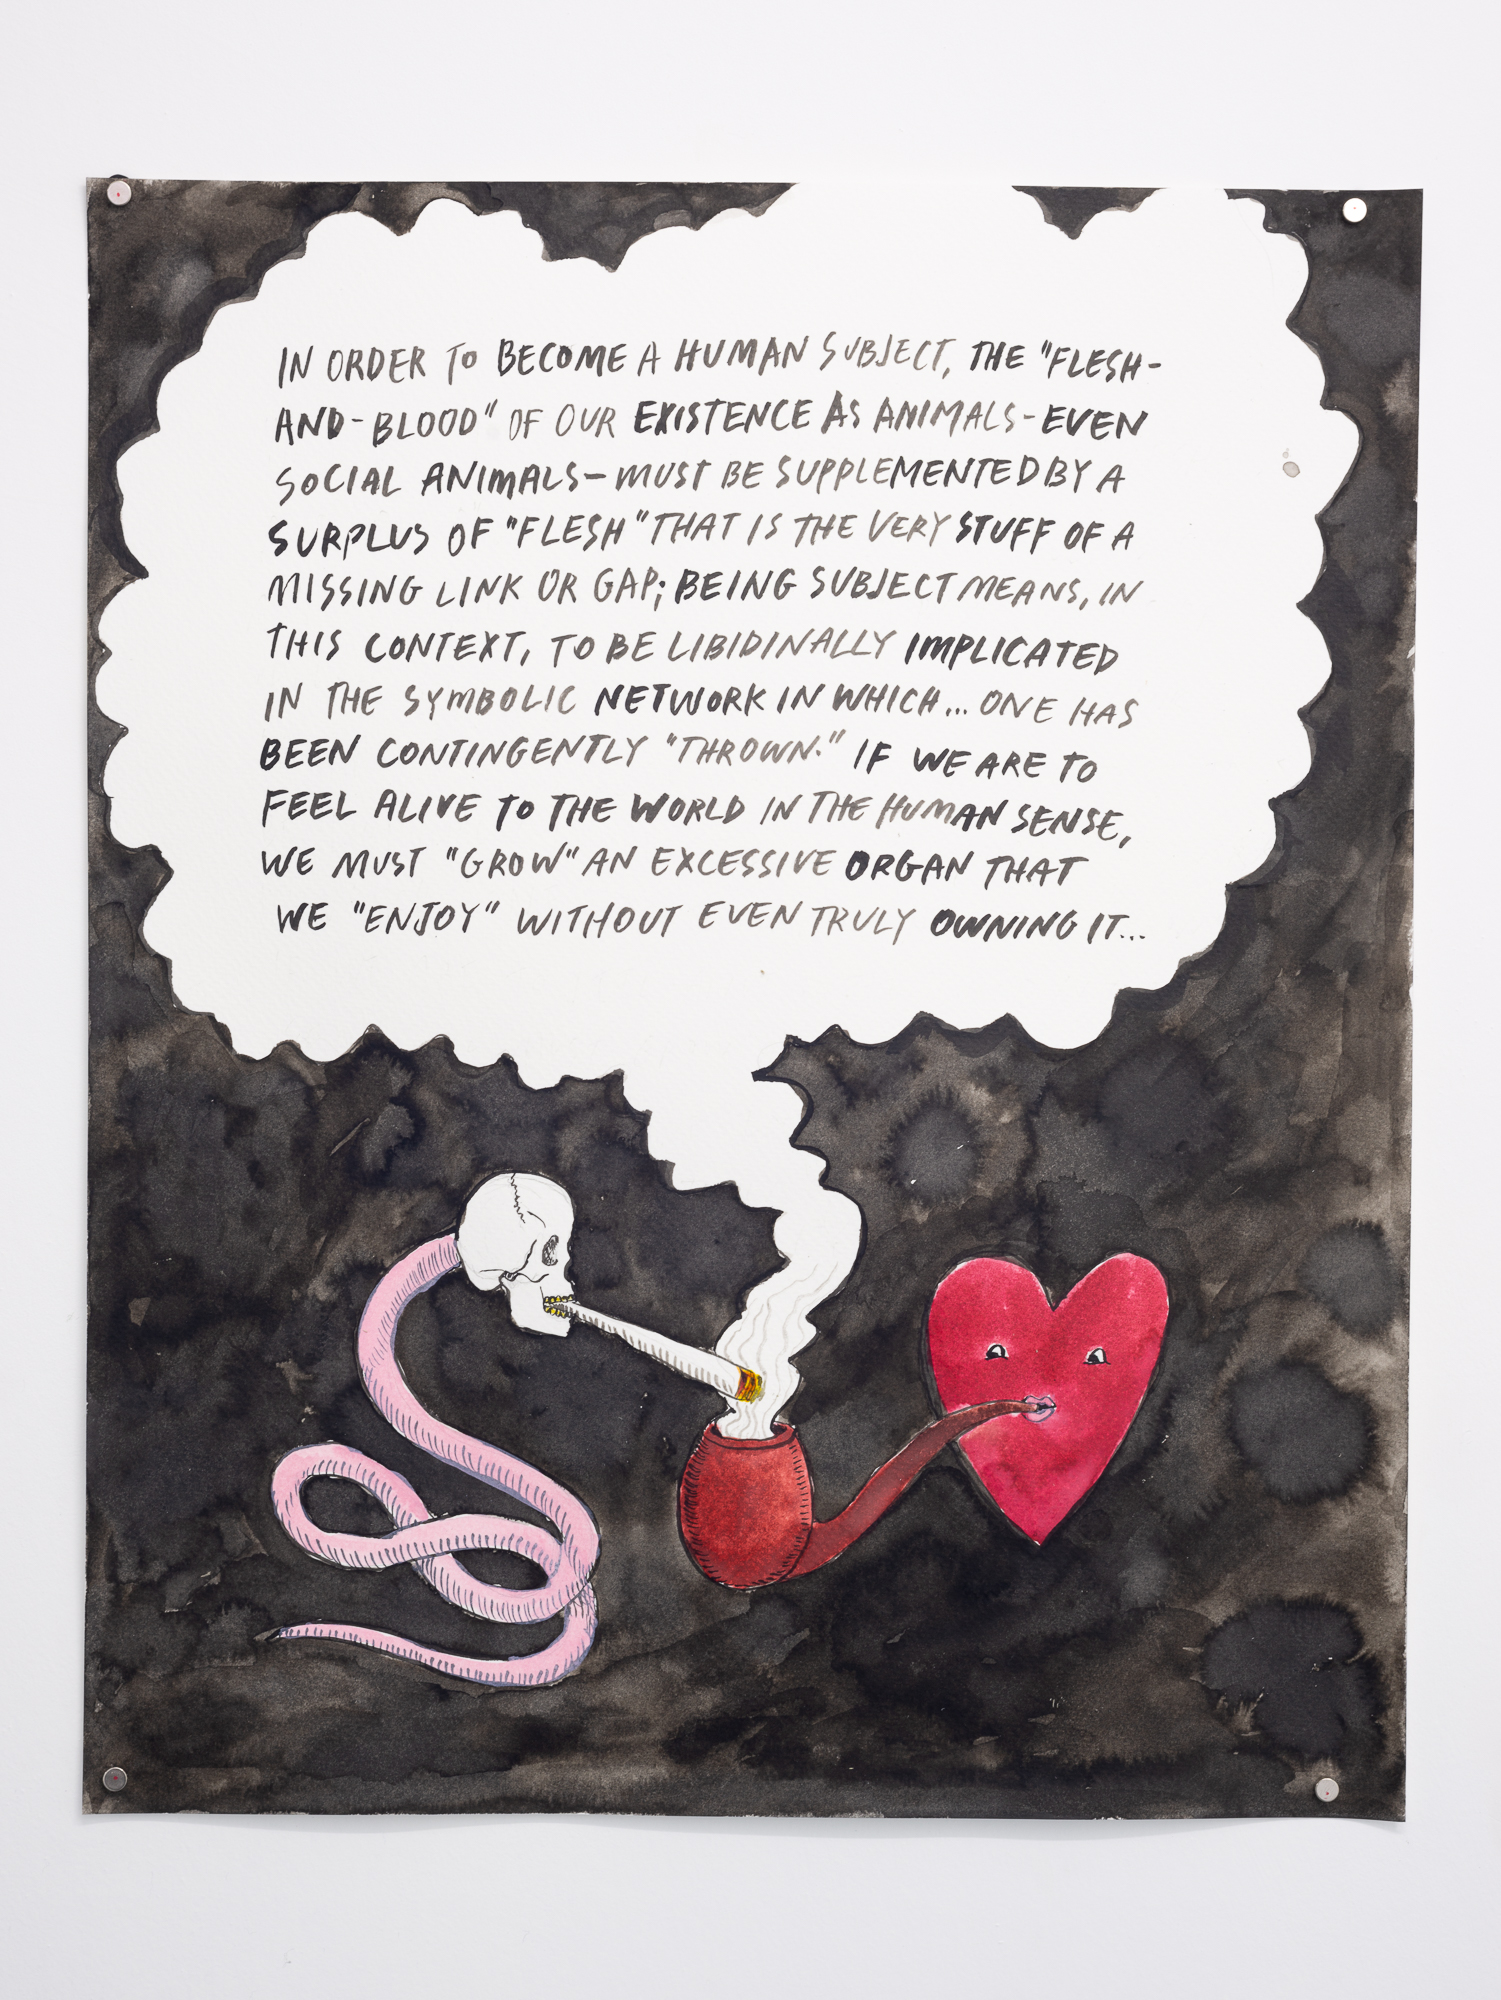 IN ORDER TO BECOME A HUMAN SUBJECT, THE "FLESH-
AND-BLOOD" OF OUR EXISTENCE AS ANIMALS-EVEN
SOCIAL ANIMALS—MUST BE SUPPLEMENTED BY A
SURPLUS OF "FLESH" THAT IS THE VERY STUFF OF A
MISSING LINK OR GAP; BEING SUBJECT MEANS, IN
THIS CONTEXT, TO BE LIBIDINALLY IMPLICATED
IN THE SYMBOLIC NETWORK IN WHICH... ONE HAS
BEEN CONTINGENTLY "THROWN." IF WE ARE TO
FEEL ALIVE TO THE WORLD IN THE HUMAN SENSE,
WE MUST "GROW" AN EXCESSIVE ORGAN THAT
WE "ENJOY" WITHOUT EVEN TRULY OWNING IT...